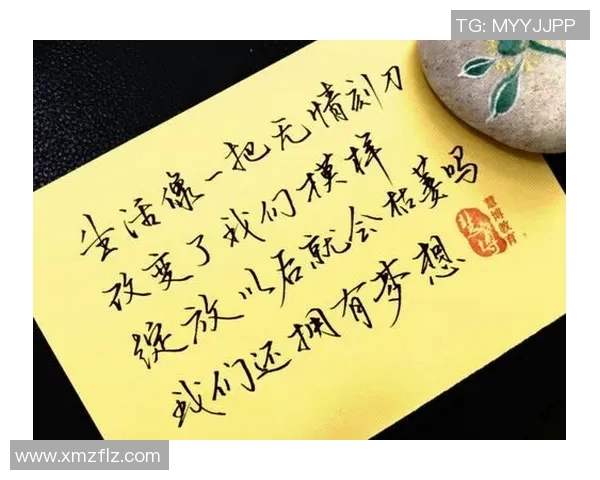 TG: MYYJJPP
生活像一把无情刻刀
改变了我们模样
绽放以后就会枯萎吗
我们还拥有梦想
慧博教育
www.xmzflz.com